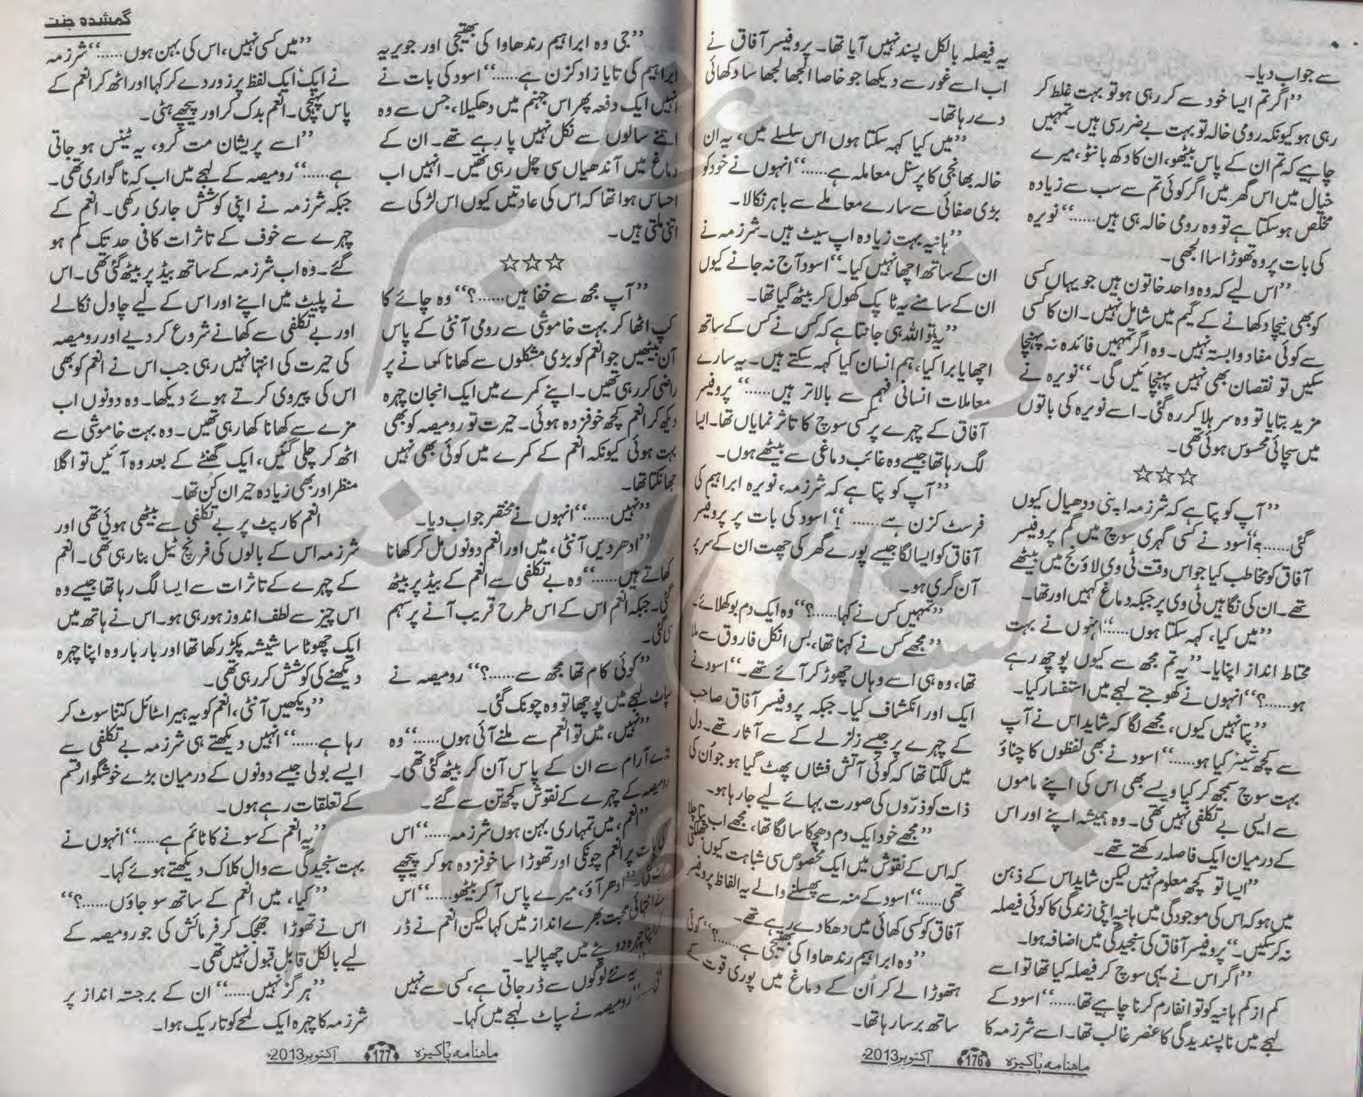 سے جواب دیا۔
”اگر تم ایسا خود سے کر رہی ہو تو بہت غلط کر
رہی ہو کیونکہ رومی خالہ تو بہت بے ضرر سی ہیں۔ تمہیں
چاہیے کہ تم ان کے پاس بیٹھو، ان کا دکھ بانٹو، میرے
خیال میں اس گھر میں اگر کوئی تم سے سب سے زیادہ
مخلص ہو سکتا ہے تو وہ رومی خالہ ہی ہیں......“ نویرہ
کی بات پر وہ تھوڑا سا الجھی۔
”اس لیے کہ وہ واحد خاتون ہیں جو یہاں کسی
کو بھی نیچا دکھانے کے گیم میں شامل نہیں۔ ان کا کسی
سے کوئی مفاد وابستہ نہیں۔ وہ اگر تمہیں فائدہ نہ پہنچا
سکیں تو نقصان بھی نہیں پہنچائیں گی۔“ نویرہ نے
مزید بتایا تو وہ سر ہلا کر رہ گئی۔ اسے نویرہ کی باتوں
میں سچائی محسوس ہوئی تھی۔
☆☆☆
”آپ کو پتا ہے کہ شرزمہ اپنی ددھیال کیوں
گئی......؟“ اسود نے کسی گہری سوچ میں گم پروفیسر
آفاق کو مخاطب کیا جو اس وقت ٹی وی لاؤنج میں بیٹھے
تھے۔ ان کی نگاہیں ٹی وی پر جبکہ دماغ کہیں اور تھا۔
”میں کیا، کہہ سکتا ہوں......“ انہوں نے بہت
محتاط انداز اپنایا۔ ”یہ تم مجھ سے کیوں پوچھ رہے
ہو......؟“ انہوں نے کھوجتے لہجے میں استفسار کیا۔
”پتا نہیں کیوں، مجھے لگا کہ شاید اس نے آپ
سے کچھ شیئر کیا ہو......“ اسود نے بھی لفظوں کا چناؤ
بہت سوچ سمجھ کر کیا ویسے بھی اس کی اپنے ماموں
سے ایسی بے تکلفی نہیں تھی۔ وہ ہمیشہ اپنے اور اس
کے درمیان ایک فاصلہ رکھتے تھے۔
”ایسا تو کچھ معلوم نہیں لیکن شاید اس کے ذہن
میں ہو کہ اس کی موجودگی میں ہانیہ اپنی زندگی کا کوئی فیصلہ
نہ کر سکیں۔“ پروفیسر آفاق کی سنجیدگی میں اضافہ ہوا۔
”اگر اس نے یہی سوچ کر فیصلہ کیا تھا تو اسے
کم از کم ہانیہ کو تو انفارم کرنا چاہیے تھا......“ اسود کے
لہجے میں ناپسندیدگی کا عنصر غالب تھا۔ اسے شرزمہ کا
یہ فیصلہ بالکل پسند نہیں آیا تھا۔ پروفیسر آفاق نے
اب اسے غور سے دیکھا جو خاصا الجھا الجھا سا دکھائی
دے رہا تھا۔
”میں کیا کہہ سکتا ہوں اس سلسلے میں، یہ ان
خالہ بھانجی کا پرسنل معاملہ ہے......“ انہوں نے خود کو
بڑی صفائی سے سارے معاملے سے باہر نکالا۔
”ہانیہ بہت زیادہ اپ سیٹ ہیں۔ شرزمہ نے
ان کے ساتھ اچھا نہیں کیا۔“ اسود آج نہ جانے کیوں
ان کے سامنے یہ ٹاپک کھول کر بیٹھ گیا تھا۔
”یہ تو اللہ ہی جانتا ہے کہ کس نے کس کے ساتھ
اچھا یا برا کیا، ہم انسان کیا کہہ سکتے ہیں۔ یہ سارے
معاملات انسانی فہم سے بالاتر ہیں......“ پروفیسر
آفاق کے چہرے پر کسی سوچ کا تاثر نمایاں تھا۔ ایسا
لگ رہا تھا جیسے وہ غائب دماغی سے بیٹھے ہوں۔
”آپ کو پتا ہے کہ شرزمہ، نویرہ ابراہیم کی
فرسٹ کزن ہے......!“ اسود کی بات پر پروفیسر
آفاق کو ایسا لگا جیسے پورے گھر کی چھت ان کے سر پر
آن گری ہو۔
”تمہیں کس نے کہا......؟“ وہ ایک دم بوکھلائے۔
”مجھے کس نے کہنا تھا، بس انکل فاروق سے ملا
تھا، وہ ہی اسے وہاں چھوڑ کر آئے تھے۔“ اسود نے
ایک اور انکشاف کیا۔ جبکہ پروفیسر آفاق صاحب
کے چہرے پر جیسے زلزلے کے سے آثار تھے۔ دل
میں لگتا تھا کہ کوئی آتش فشاں پھٹ گیا ہو جو اُن کی
ذات کو ذرّوں کی صورت بہائے لیے جا رہا ہو۔
”مجھے خود ایک دم دھچکا سا لگا تھا، مجھے اب پتا چلا
کہ اس کے نقوش میں ایک مخصوص سی شباہت کیوں جھلکتی
تھی......“ اسود کے منہ سے پھسلنے والے یہ الفاظ پروفیسر
آفاق کو کسی کھائی میں دھکا دے رہے تھے۔
”وہ ابراہیم رندھاوا کی بھتیجی ہے......؟“ کوئی
ہتھوڑا لے کر اُن کے دماغ میں پوری قوت کے
ساتھ برسا رہا تھا۔
ماہنامہ پاکیزہ 176 اکتوبر 2013ء
گمشدہ جنت
”جی وہ ابراہیم رندھاوا کی بھتیجی اور جویریہ
ابراہیم کی تایا زاد کزن ہے......“ اسود کی بات نے
انہیں ایک دفعہ پھر اس جہنم میں دھکیلا، جس سے وہ
اتنے سالوں سے نکل نہیں پا رہے تھے۔ ان کے
دماغ میں آندھیاں سی چل رہی تھیں۔ انہیں اب
احساس ہوا تھا کہ اس کی عادتیں کیوں اس لڑکی سے
اتنی ملتی ہیں۔
☆☆☆
”آپ مجھ سے خفا ہیں......؟“ وہ چائے کا
کپ اٹھا کر بہت خاموشی سے رومی آنٹی کے پاس
آن بیٹھیں جو انعم کو بڑی مشکلوں سے کھانا کھانے پر
راضی کر رہی تھیں۔ اپنے کمرے میں ایک انجان چہرہ
دیکھ کر انعم کچھ خوفزدہ ہوئی۔ حیرت تو رومیصہ کو بھی
بہت ہوئی کیونکہ انعم کے کمرے میں کوئی بھی نہیں
جھانکتا تھا۔
”نہیں......“ انہوں نے مختصر جواب دیا۔
”ادھر دیں آنٹی، میں اور انعم دونوں مل کر کھانا
کھاتے ہیں......“ وہ بے تکلفی سے انعم کے بیڈ پر بیٹھ
گئی۔ جبکہ انعم اس کے اس طرح قریب آنے پر سہم
گئی۔
”کوئی کام تھا مجھ سے......؟“ رومیصہ نے
سپاٹ لہجے میں پوچھا تو وہ چونک گئی۔
”نہیں، میں تو انعم سے ملنے آئی ہوں......“ وہ
بڑے آرام سے ان کے پاس آن کر بیٹھ گئی تھی۔
رومیصہ کے چہرے کے نقوش کچھ تن سے گئے۔
”انعم، میں تمہاری بہن ہوں شرزمہ......“ اس
کی بات پر انعم چونکی اور تھوڑا سا خوفزدہ ہو کر پیچھے
”ادھر آؤ، میرے پاس آ کر بیٹھو......“ اس
نے انتہائی محبت بھرے انداز میں کہا لیکن انعم نے ڈر
کر اپنا چہرہ دوپٹے میں چھپا لیا۔
”یہ نئے لوگوں سے ڈر جاتی ہے، کسی سے نہیں
رومیصہ نے سپاٹ لہجے میں کہا۔
”میں کسی نہیں، اس کی بہن ہوں......“ شرزمہ
نے ایک ایک لفظ پر زور دے کر کہا اور اٹھ کر انعم کے
پاس پہنچی۔ انعم بدک کر اور پیچھے ہٹی۔
”اسے پریشان مت کرو، یہ ٹینس ہو جاتی
ہے......“ رومیصہ کے لہجے میں اب کہ ناگواری تھی۔
جبکہ شرزمہ نے اپنی کوشش جاری رکھی۔ انعم کے
چہرے سے خوف کے تاثرات کافی حد تک کم ہو
گئے۔ وہ اب شرزمہ کے ساتھ بیڈ پر بیٹھ گئی تھی۔ اس
نے پلیٹ میں اپنے اور اس کے لیے چاول نکالے
اور بے تکلفی سے کھانے شروع کر دیے اور رومیصہ
کی حیرت کی انتہا نہیں رہی جب اس نے انعم کو بھی
اس کی پیروی کرتے ہوئے دیکھا۔ وہ دونوں اب
مزے سے کھانا کھا رہی تھیں۔ وہ بہت خاموشی سے
اٹھ کر چلی گئیں، ایک گھنٹے کے بعد وہ آئیں تو اگلا
منظر اور بھی زیادہ حیران کن تھا۔
انعم کارپٹ پر بے تکلفی سے بیٹھی ہوئی تھی اور
شرزمہ اس کے بالوں کی فرنچ ٹیل بنا رہی تھی۔ انعم
کے چہرے کے تاثرات سے ایسا لگ رہا تھا جیسے وہ
اس چیز سے لطف اندوز ہو رہی ہو۔ اس نے ہاتھ میں
ایک چھوٹا سا شیشہ پکڑ رکھا تھا اور بار بار وہ اپنا چہرہ
دیکھنے کی کوشش کر رہی تھی۔
”دیکھیں آنٹی، انعم کو یہ ہیر اسٹائل کتنا سوٹ کر
رہا ہے......“ انہیں دیکھتے ہی شرزمہ بے تکلفی سے
ایسے بولی جیسے دونوں کے درمیان بڑے خوشگوار قسم
کے تعلقات رہے ہوں۔
”یہ انعم کے سونے کا ٹائم ہے......“ انہوں نے
بہت سنجیدگی سے وال کلاک دیکھتے ہوئے کہا۔
”کیا، میں انعم کے ساتھ سو جاؤں......؟“
اس نے تھوڑا جھجک کر فرمائش کی جو رومیصہ کے
لیے بالکل قابلِ قبول نہیں تھی۔
”ہرگز نہیں......“ ان کے برجستہ انداز پر
شرزمہ کا چہرہ ایک لمحے کو تاریک ہوا۔
ماہنامہ پاکیزہ 177 اکتوبر 2013ء